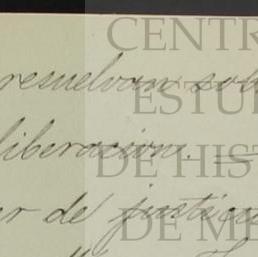 resuelvan sob
liberacion. —
er de justicia
CENTR
ESTU
DE HIST
DE ME